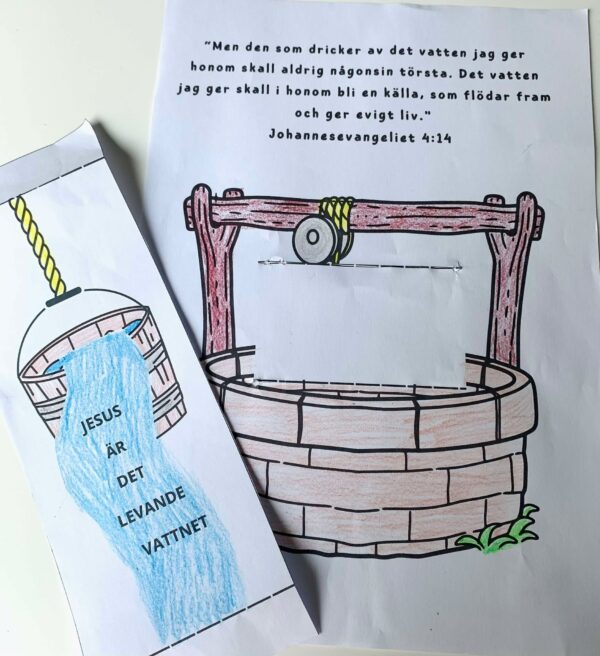 "Men den som dricker av det vatten jag ger
honom skall aldrig någonsin törsta. Det vatten
jag ger skall i honom bli en källa, som flödar fram
och ger evigt liv."
Johannesevangeliet 4:14
JESUS
ÄR
DET
LEVANDE
VATTNET